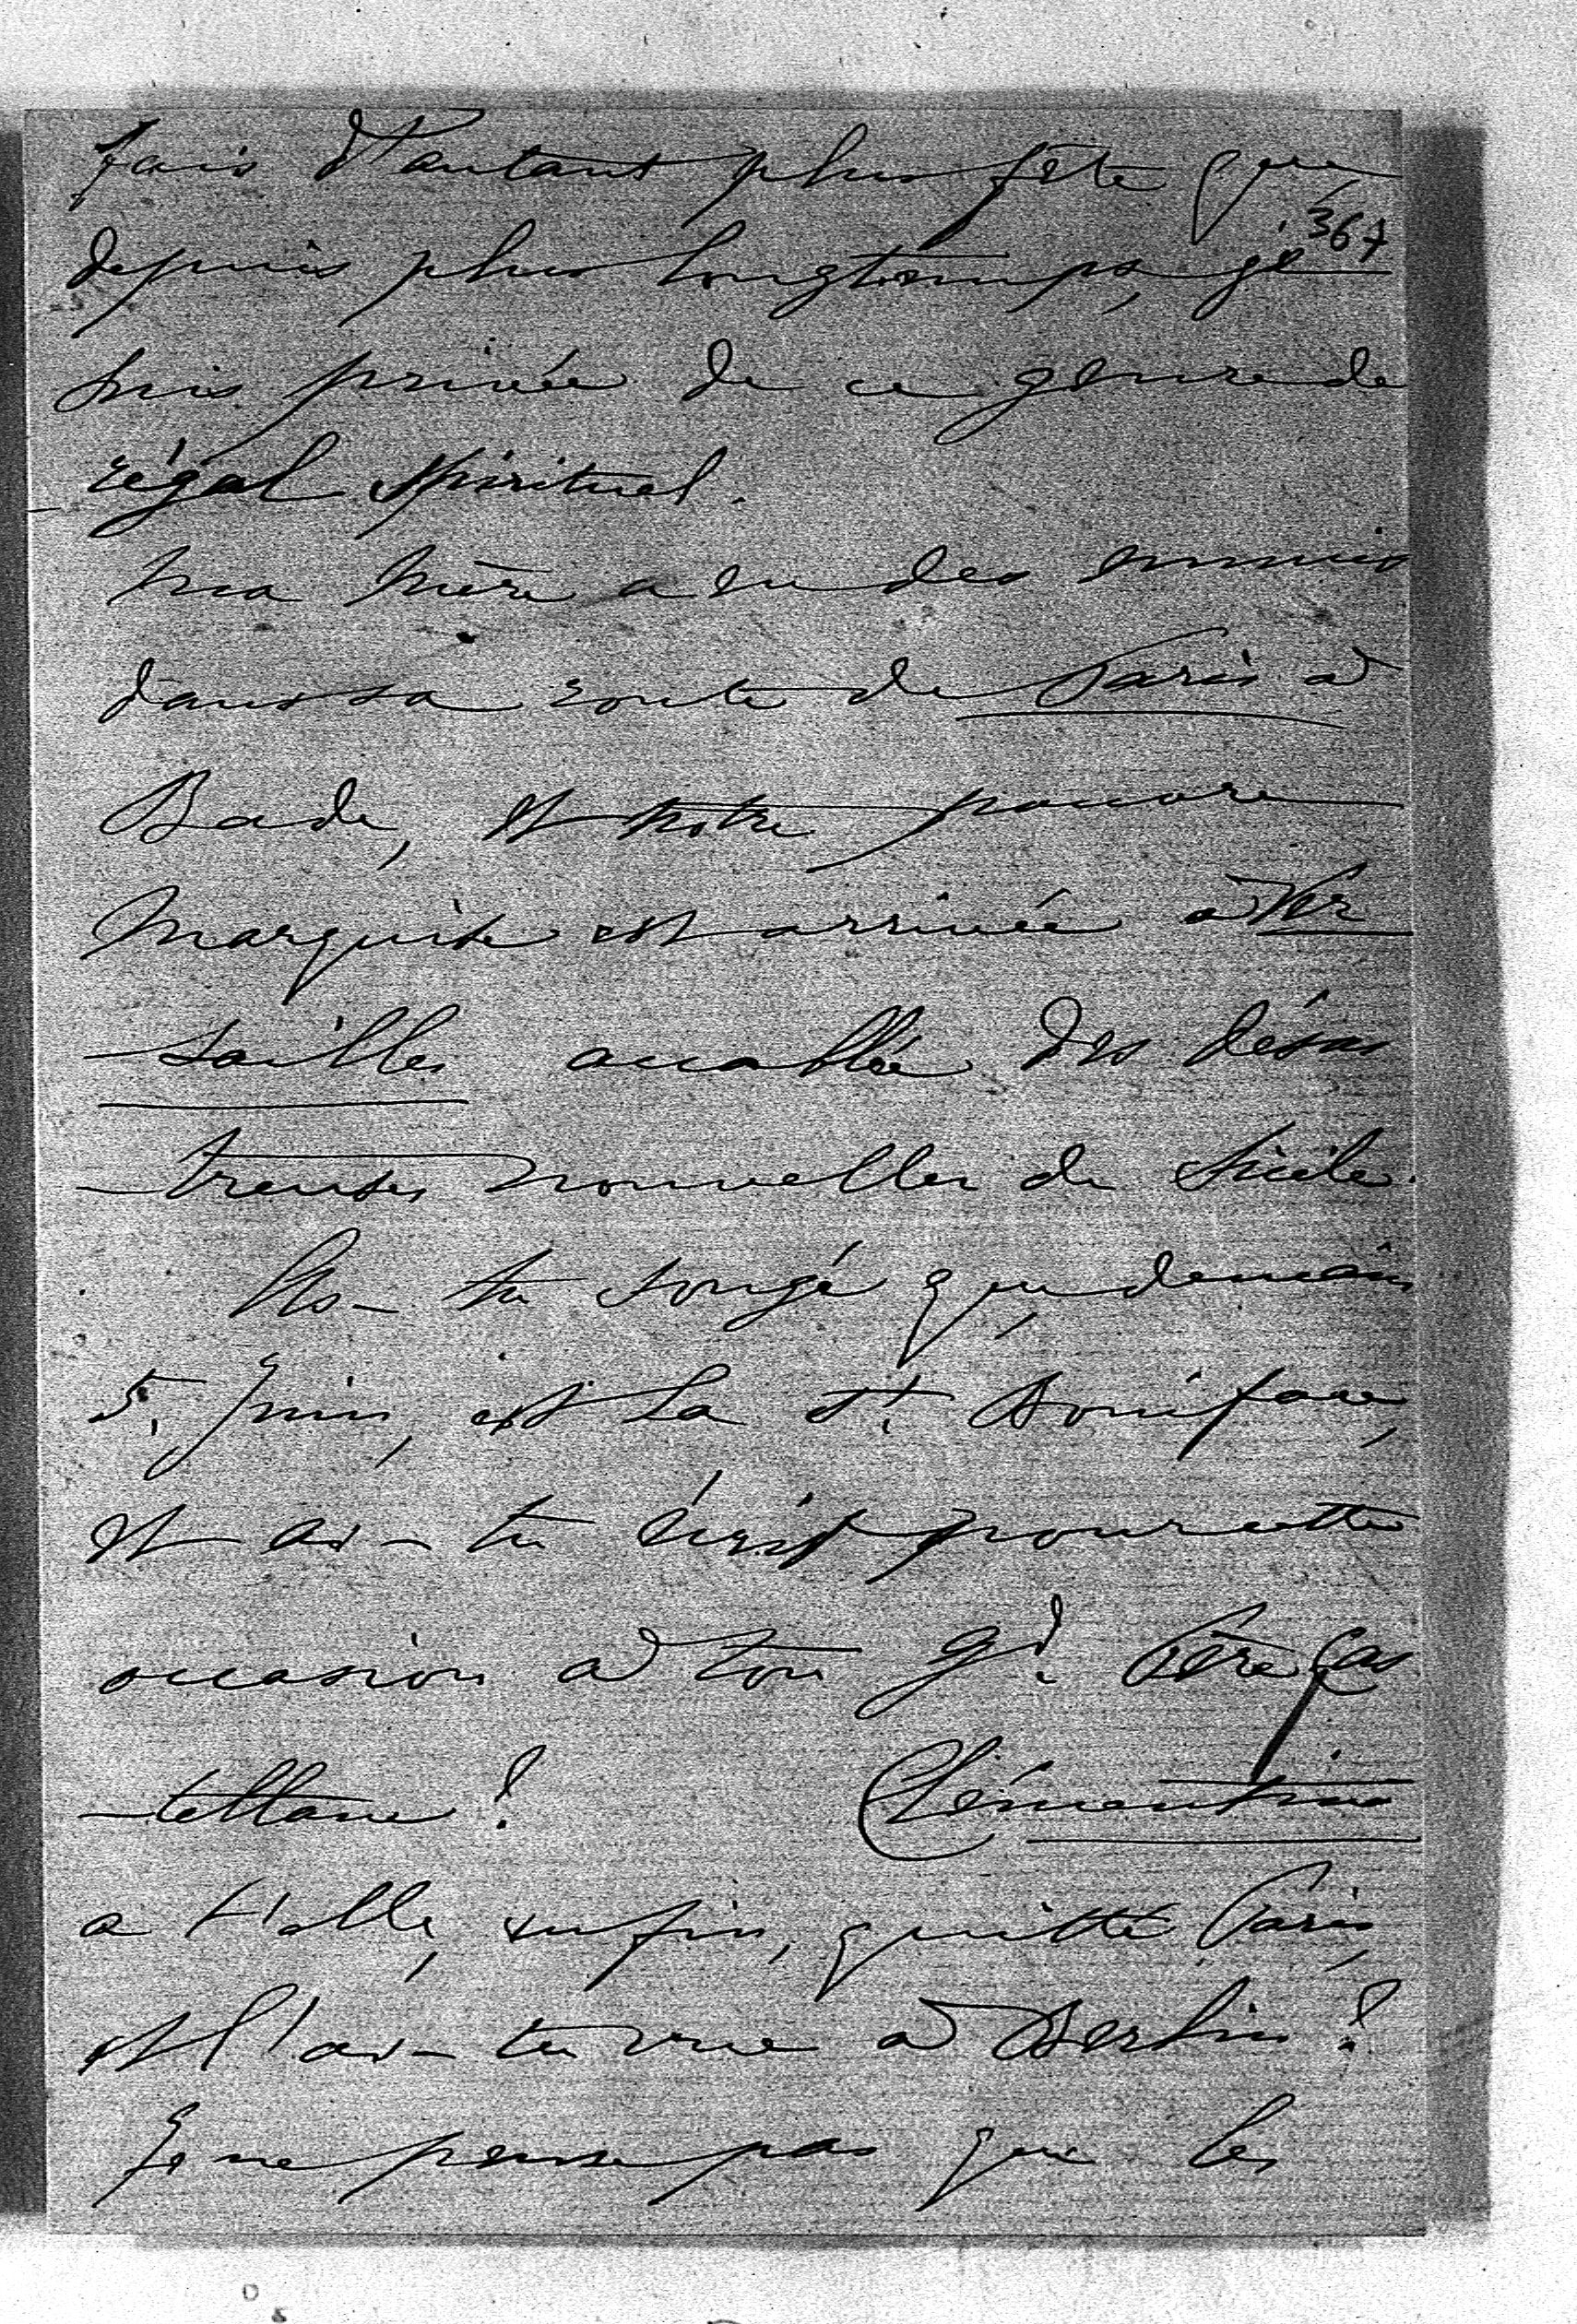 fais d'autant plus fête que,
367
depuis plus longtemps, je
suis privée de ce genre de
régal spirituel.
Ma mère a eu des ennuis
dans sa route de Paris à
Bade, et notre pauvre
Marquise est arrivée à Ver
sailles accablée des désas
-treuses nouvelles de Sicile.
As-tu songé que, demain
5. Juin, est la St. Boniface,
et as-tu écrit pour cette
occasion à ton gd. Père Cas
-tellane? Clémentine
a t'elle, enfin, quitté Paris,
et l'as-tu vue à Berlin?
Je ne pense pas que les